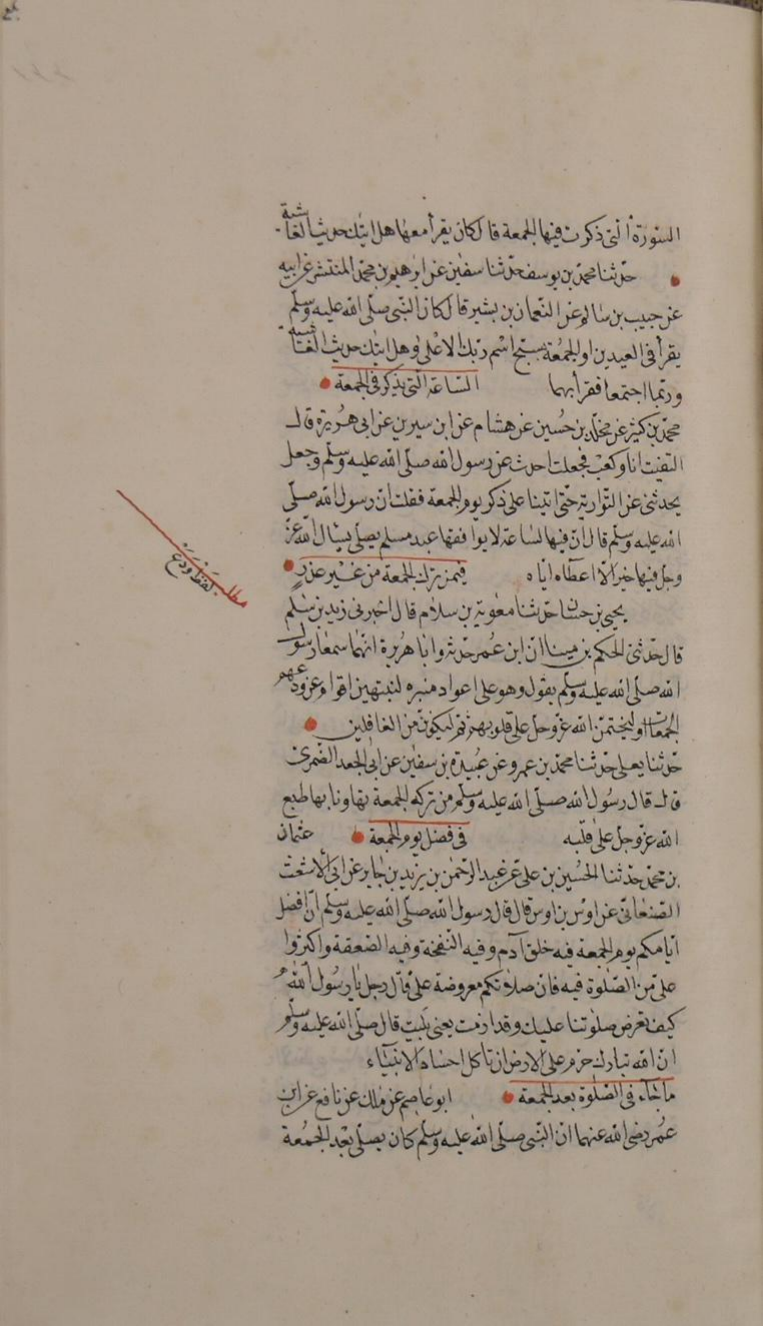 السورة التى ذكرت فيها الجمعة قال كان يقرأ معها هل اتيك حديث الغاشية
حدثنا محمد بن يوسف حدثنا سفين عن ابرهيم بن محمد المنتشر عن ابيه
عن حبيب بن سالم عن النعمان بن بشير قال كان النبى صلى الله عليه وسلم
يقرأ فى العيدين او الجمعة بسبح اسم ربك الاعلى وهل اتيك حديث الغاشية
وربما اجتمعا فقرأ بهما الساعة التى يذكر فى الجمعة
محمد بن كثير عن مخلد بن حسين عن هشام عن ابن سيرين عن ابى هريرة قال
التقيت انا وكعب فجعلت احدث عن رسول الله صلى الله عليه وسلم وجعل
يحدثنى عن التوارية حتى اتينا على ذكر يوم الجمعة فقلت ان رسول الله صلى
الله عليه وسلم قال ان فيها لساعة لا يوافقها عبد مسلم يصلى يسال الله عز
وجل فيها خيرا الا اعطاه اياه فيمن ترك الجمعة من غير عذر
يحيى بن حسان حدثنا معوية بن سلام قال اخبرنى زيد بن سلم
قال حدثنى الحكم بن مينا ان ابن عمر حدثه وابا هريرة انهما سمعا رسول
الله صلى الله عليه وسلم يقول وهو على اعواد منبره لينتهين اقوام عن ودعهم
الجمعات او ليختمن الله عز وجل على قلوبهم ثم ليكونن من الغافلين
حدثنا يعلى حدثنا محمد بن عمرو عن عبيدة بن سفين عن ابى الجعد الضمرى
قال قال رسول الله صلى الله عليه وسلم من ترك الجمعة تهاونا بها طبع
الله عز وجل على قلبه فى فضل يوم الجمعة عثمان
بن محمد حدثنا الحسين بن على عن عبد الرحمن بن يزيد بن جابر عن ابى الاشعث
الصنعانى عن اوس بن اوس قال قال رسول الله صلى الله عليه وسلم ان افضل
ايامكم يوم الجمعة فيه خلق آدم وفيه النفخة وفيه الصعقة واكثروا
على من الصلوة فيه فان صلاتكم معروضة على قال رجل يا رسول الله
كيف تعرض صلوتنا عليك وقد ارمت يعنى بليت قال صلى الله عليه وسلم
ان الله تبارك حرم على الارض ان تاكل اجساد الانبياء
ما جاء فى الصلوة بعد الجمعة ابو عاصم عن ملك عن نافع عن ابن
عمر رضى الله عنهما ان النبى صلى الله عليه وسلم كان يصلى بعد الجمعة
مطلب
لفظ ودع